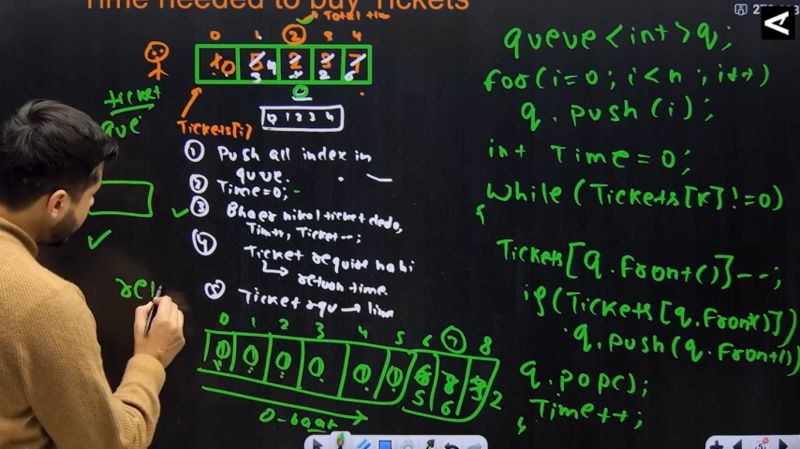 Time needed to buy Tickets
Total tim
0 1 2 3 4
0
ticket
que
Tickets[i]
0 1 2 3 4
① Push all index in
queue.
② Time=0;
③ Bhaer nikal ticket dedo,
Tim++, Ticket--;
④ Ticket require nahi
↳ return time
⑤ Ticket requ → line
0 1 2 3 4 5 6 7 8
0 0 0 0 0 0
5 6 3 2
0-baar
queue<int>q;
for(i=0; i<n; i++)
q.push(i);
int Time=0;
while(Tickets[K]!=0)
{
Tickets[q.front()]--;
if(Tickets[q.front()])
q.push(q.front()
q.pop();
Time++;
}